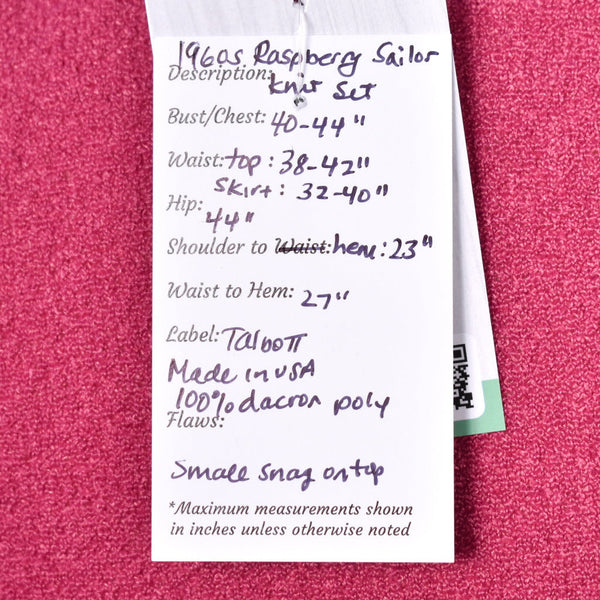 1960s Raspberry Sailor
Description: knit set
Bust/Chest: 40-44"
Waist: top: 38-42"
skirt: 32-40"
Hip: 44"
Shoulder to Waist: hem: 23"
Waist to Hem: 27"
Label: Talbott
Made in USA
100% dacron poly
Flaws:
Small snag on top
*Maximum measurements shown
in inches unless otherwise noted